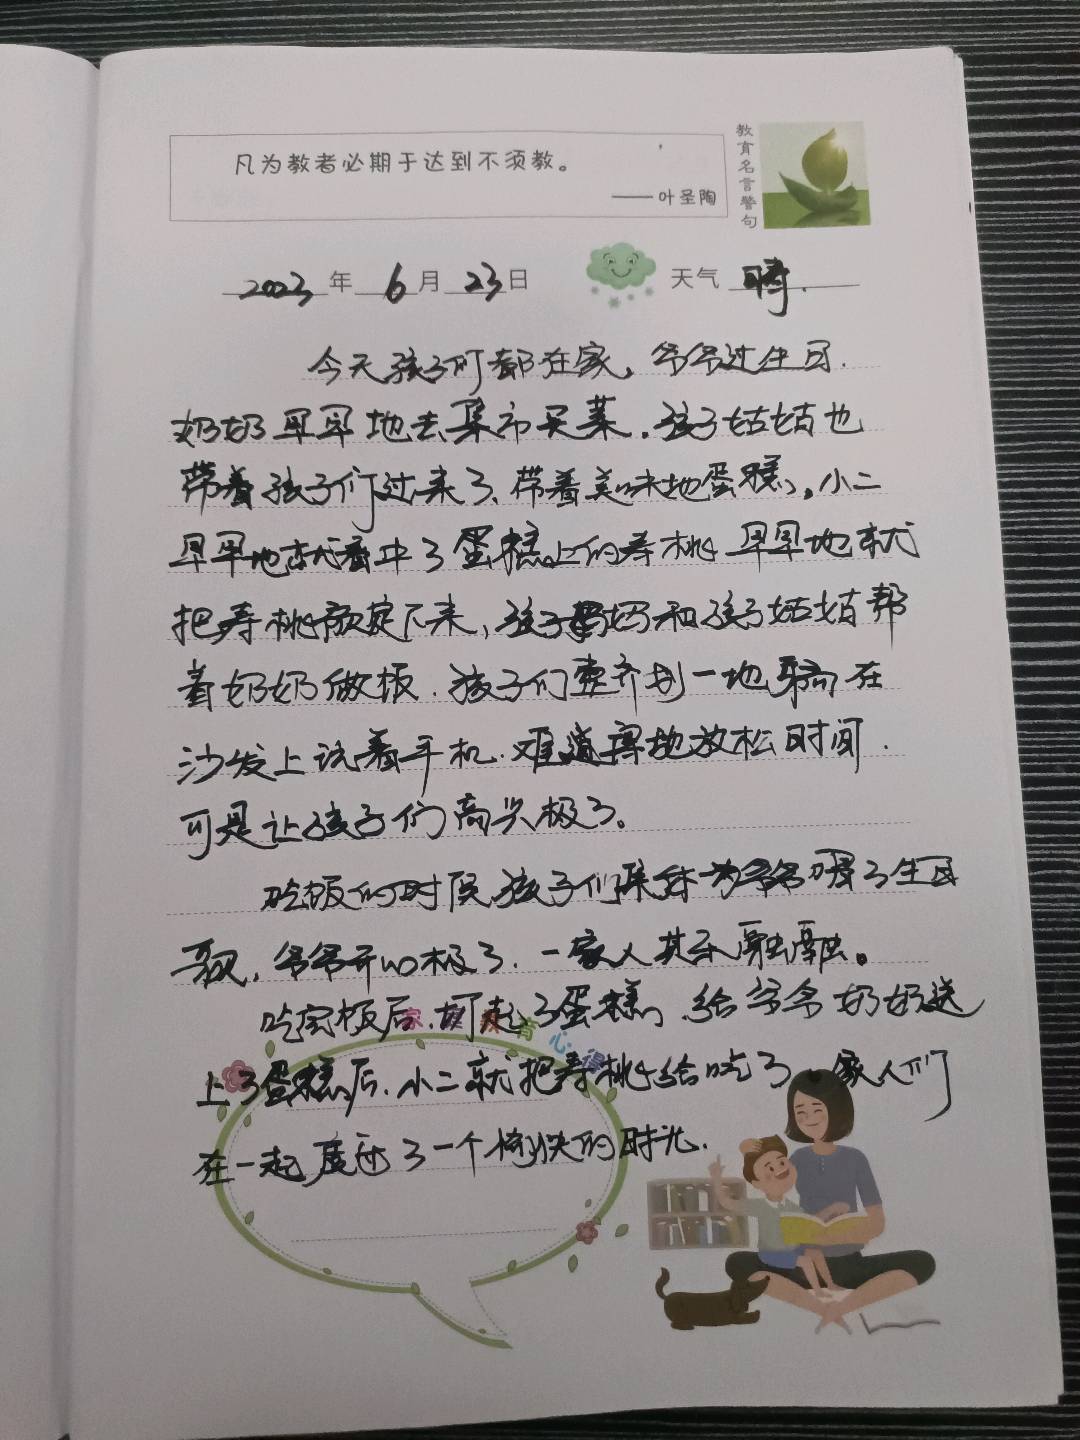 凡为教者必期于达到不须教。
——叶圣陶
教育名言警句
2023年6月23日 天气 晴.
今天孩子们都在家，爷爷过生日.
奶奶早早地去集市买菜.孩子姑姑也
带着孩子们过来了、带着美味地蛋糕，小二
早早地就看中了蛋糕上的寿桃 早早地就
把寿桃预定下来，孩子妈妈和孩子姑姑帮
着奶奶做饭.孩子们整齐划一地躺在
沙发上玩着手机.难道得地放松时间.
可是让孩子们高兴极了。
吃饭的时候孩子们集体为爷爷唱了生日
歌，爷爷开心极了.一家人其乐融融。
吃完饭后.切起了蛋糕，给爷爷奶奶送
上了蛋糕后.小二就把寿桃给吃了.一家人们
在一起度过了一个愉快的时光.
家教育心得